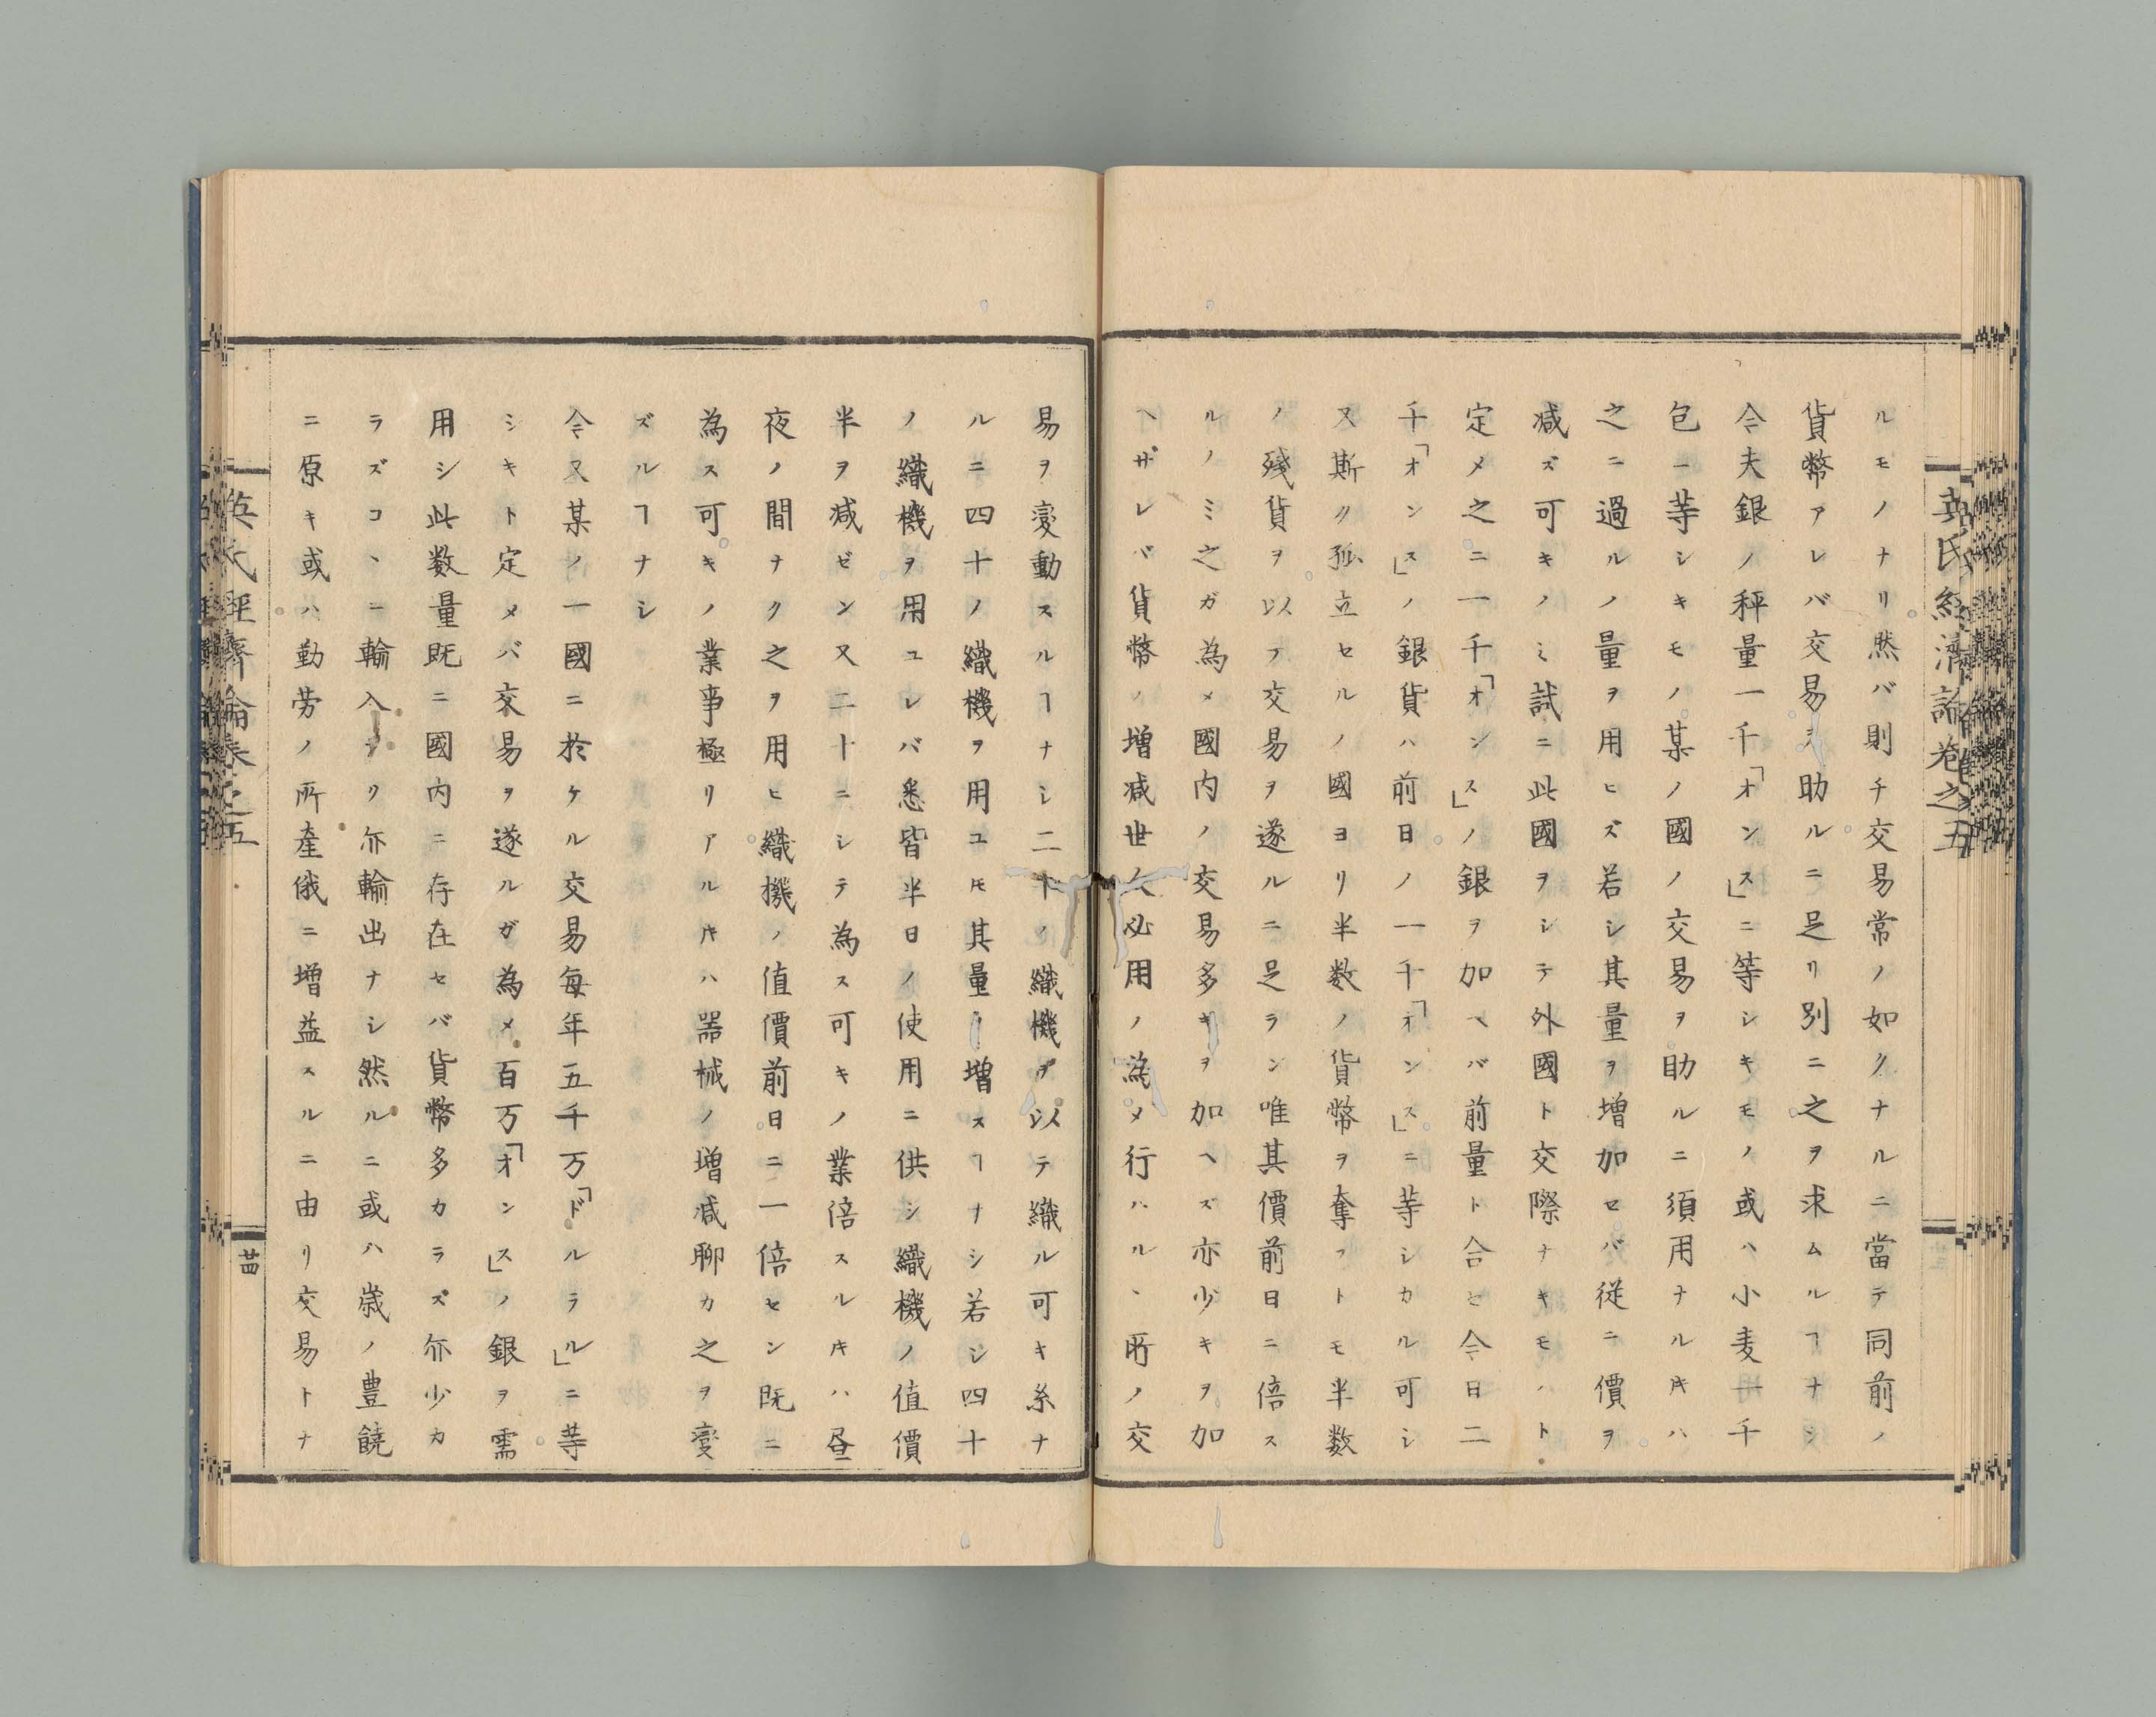 英氏経済論卷之五
ルモノナリ然バ則チ交易常ノ如クナルニ當テ同前ノ
貨幣アレバ交易ヲ助ルニ足リ別ニ之ヲ求ムルヿナシ
今夫銀ノ秤量一千「オンス」ニ等シキモノ或ハ小麦一千
包ニ等シキモノ某ノ國ノ交易ヲ助ルニ須用ナルキハ
之ニ過ルノ量ヲ用ヒズ若シ其量ヲ增加セバ從ニ價ヲ
减ズ可キノミ試ニ此國ヲシテ外國ト交際ナキモノト
定メ之ニ一千「オンス」ノ銀ヲ加ヘバ前量ト合セ今日二
千「オンス」ノ銀貨ハ前日ノ一千「オンス」ニ等シカル可シ
又斯ク孤立セルノ國ヨリ半数ノ貨幣ヲ奪フトモ半数
ノ殘貨ヲ以テ交易ヲ遂ルニ足ラン唯其價前日ニ倍ス
ルノミ之ガ為メ國内ノ交易多キヲ加ヘズ亦少キヲ加
ヘザレバ貨幣ノ增减世人必用ノ為メ行ハルヽ所ノ交
易ヲ變動スルヿナシ二十ノ織機ヲ以テ織ル可キ糸ナ
ルニ四十ノ織機ヲ用ユルモ其量ノ增スヿナシ若シ四十
ノ織機ヲ用ユレバ悉皆半日ノ使用ニ供シ織機ノ值價
半ヲ减ゼン又二十ニシテ為ス可キノ業倍スルキハ昼
夜ノ間ナク之ヲ用ヒ織機ノ值價前日ニ一倍セン既ニ
為ス可キノ業事極リアルキハ器械ノ增减聊カ之ヲ變
ズルヿナシ
今又某ノ一國ニ於ケル交易每年五千万「ドルラル」ニ等
シキト定メバ交易ヲ遂ルガ為メ百万「オンス」ノ銀ヲ需
用シ此数量既ニ國内ニ存在セバ貨幣多カラズ亦少カ
ラズコヽニ輸入ナク亦輸出ナシ然ルニ或ハ歳ノ豊饒
ニ原キ或ハ勤労ノ所產俄ニ增益スルニ由リ交易トナ
英氏経濟論卷之五
廿四